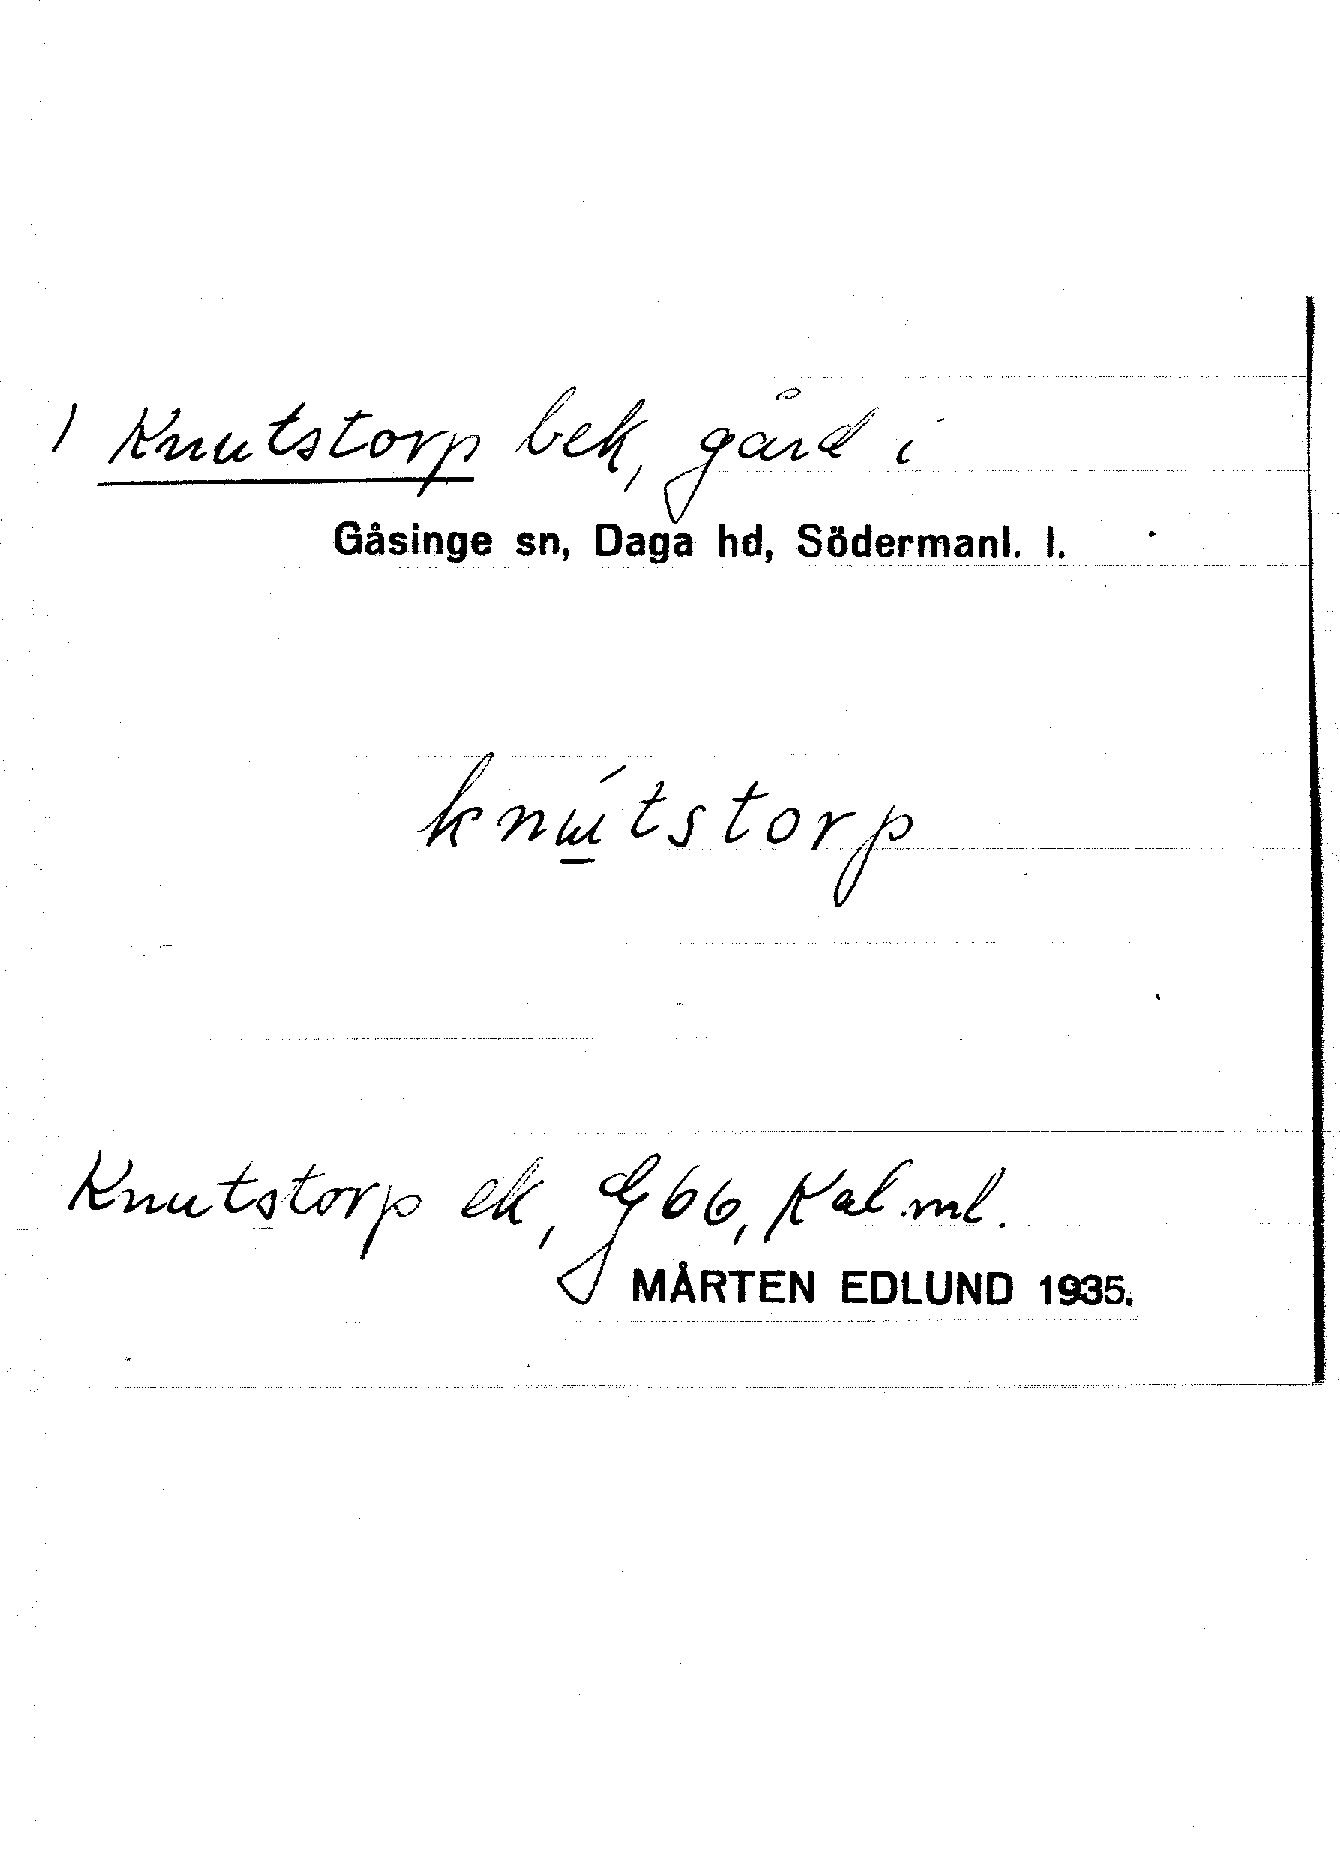 1 Knutstorp bek, gård i
Gåsinge sn, Daga hd, Södermanl. l.
knú̱tstorp
Knutstorp ek, G 66, Kal.ml.
MÅRTEN EDLUND 1935.